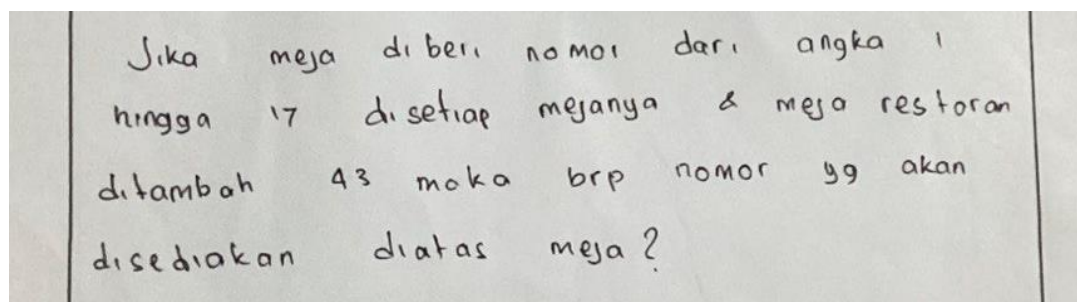 Jika meja di beri nomor dari angka 1
hingga 17 di setiap mejanya & meja restoran
ditambah 43 maka brp nomor yg akan
disediakan diatas meja?